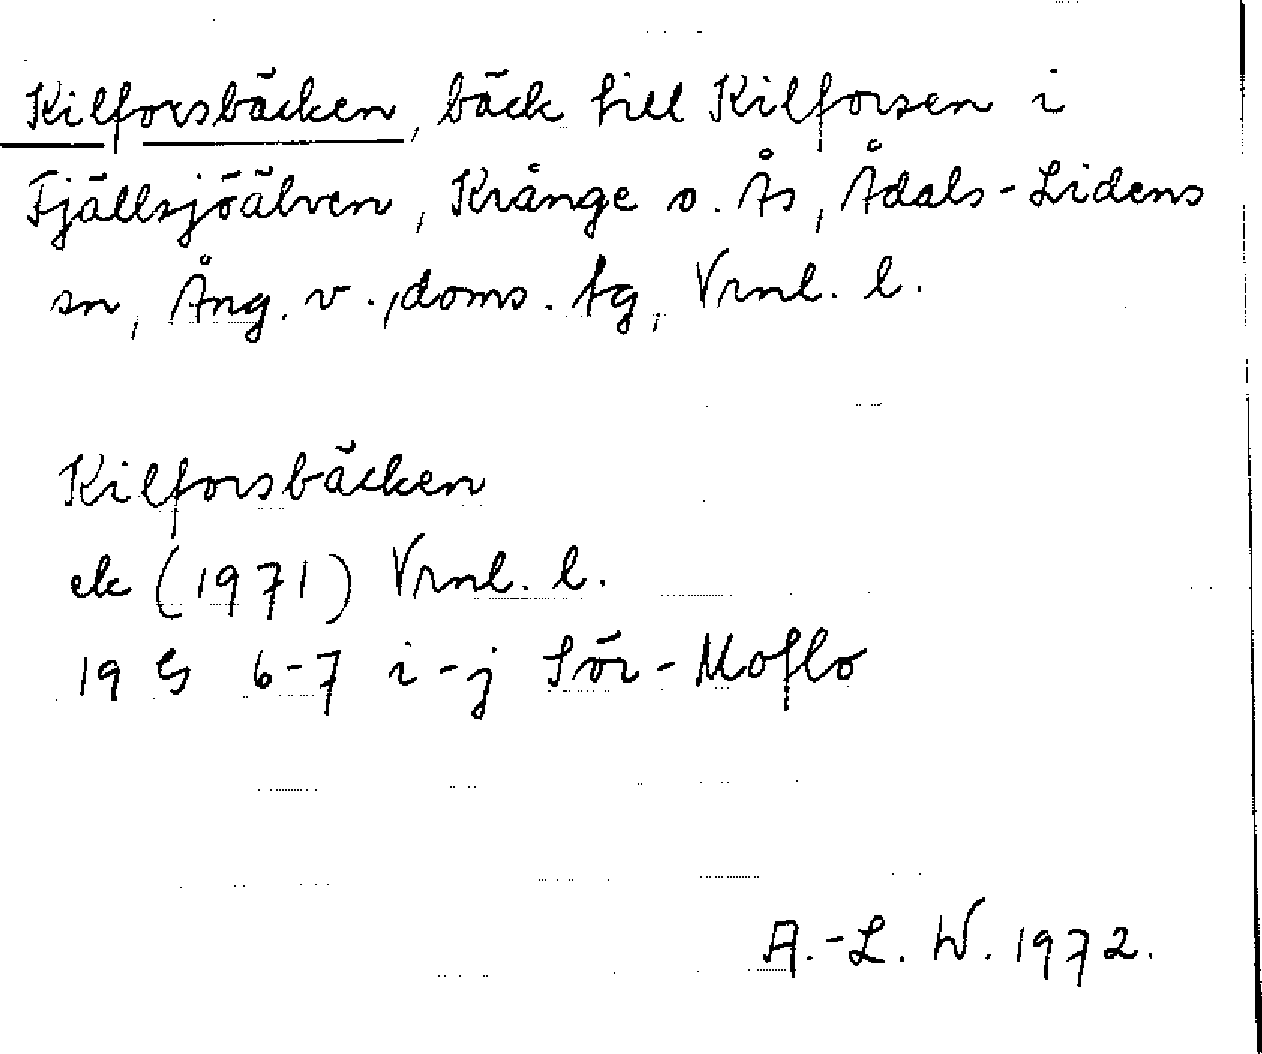 Kilforsbäcken, bäck till Kilforsen i
Fjällsjöälven, Krånge o. Ås, Ådals-Lidens
sn, Ång. v., doms. tg, Vrnl. l.
Kilforsbäcken
ek (1971) Vrnl. l.
19 G 6-7 i-j Sör-Moflo
A.-L. W. 1972.